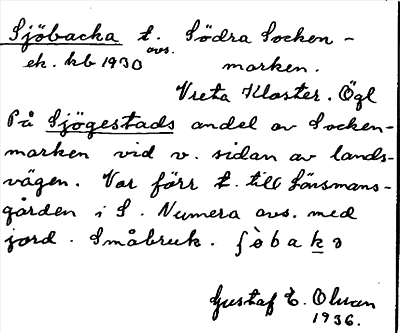 Sjöbacka t. avs. Södra Socken-
ek. kb 1930 marken.
Vreta Kloster. Ögl
På Sjögestads andel av Socken-
marken vid v. sidan av lands-
vägen. Var förr t. till Länsmans-
gården i S. Numera avs. med
jord. Småbruk.
Gustaf E. Olson
1936.